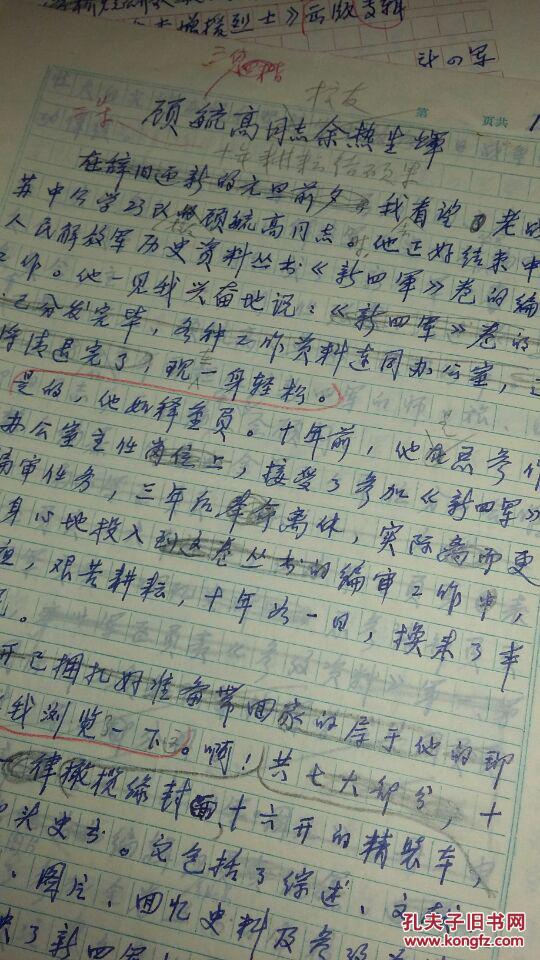 烈士》出版专辑
计四军
校友
第 页共 1
顾毓高同志余热生辉
十年耕耘结硕果
在辞旧迎新的元旦前夕,我看望了老
苏中公学 顾毓高同志。他正好结束中
人民解放军历史资料丛书《新四军》卷的编
工作。他一见我兴奋地说:《新四军》卷的
已分发完毕,各种工作资料连同办公室,
清退完了,现一身轻松。
是的,他如释重负。十年前,他在总参作
办公室主任岗位上,接受了参加《新四军》
编审任务,三年后奉命离休,实际离而更
身心地投入到这卷丛书的编审工作中,
艰苦耕耘,十年如一日,换来了丰
已捆扎好准备带回家的属于他的那
我浏览一下。啊!共七大部分,十
一律橄榄绿封面十六开的精装本,
头史书。它包括了综述、文献
、图片、回忆史料及参
了新四军
孔夫子旧书网
www.kongfz.com